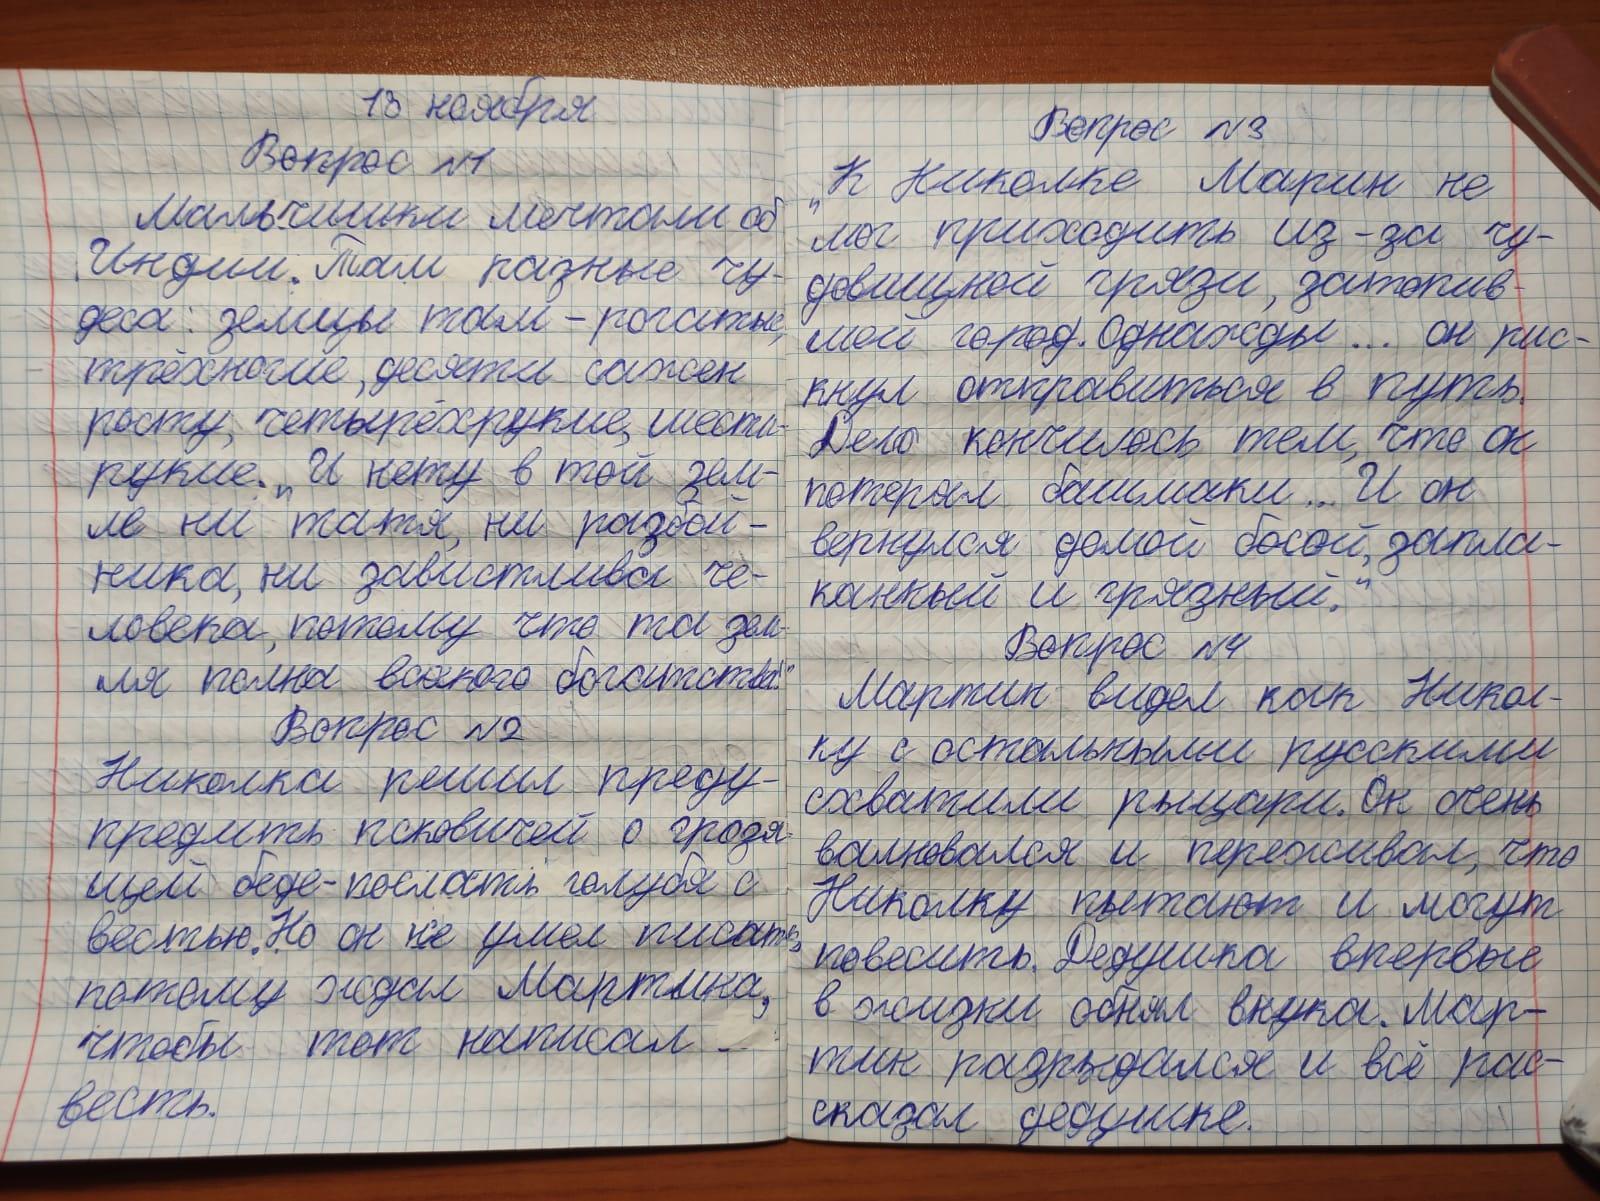 13 ноября
Вопрос №1
Мальчишки мечтали об
Индии. Там разные чу-
деса: земцы там – рогатые,
трёхногие, десяти сажен
росту, четырёхрукие, шести-
рукие. „И нету в той зем-
ле ни татя, ни разбой-
ника, ни завистлива че-
ловека, потому что та зем-
ля полна всякого богатства."
Вопрос №2
Николка решил преду-
предить псковичей о грозя-
щей беде-послать голубя с
вестью. Но он не умел писать,
потому ждал Мартина,
чтобы тот написал
весть.
Вопрос №3
„К Николке Марин не
мог приходить из-за чу-
довищной грязи, затопив-
шей город. Однажды ... он рис-
кнул отправиться в путь.
Дело кончилось тем, что он
потерял башмаки ... И он
вернулся домой босой, запла-
канный и грязный."
Вопрос №4
Мартин видел как Никол-
ку с остальными русскими
схватили рыцари. Он очень
валновался и переживал, что
Николку пытают и могут
повесить. Дедушка впервые
в жизни обнял внука. Мар-
тин разрыдался и всё рас-
сказал дедушке.